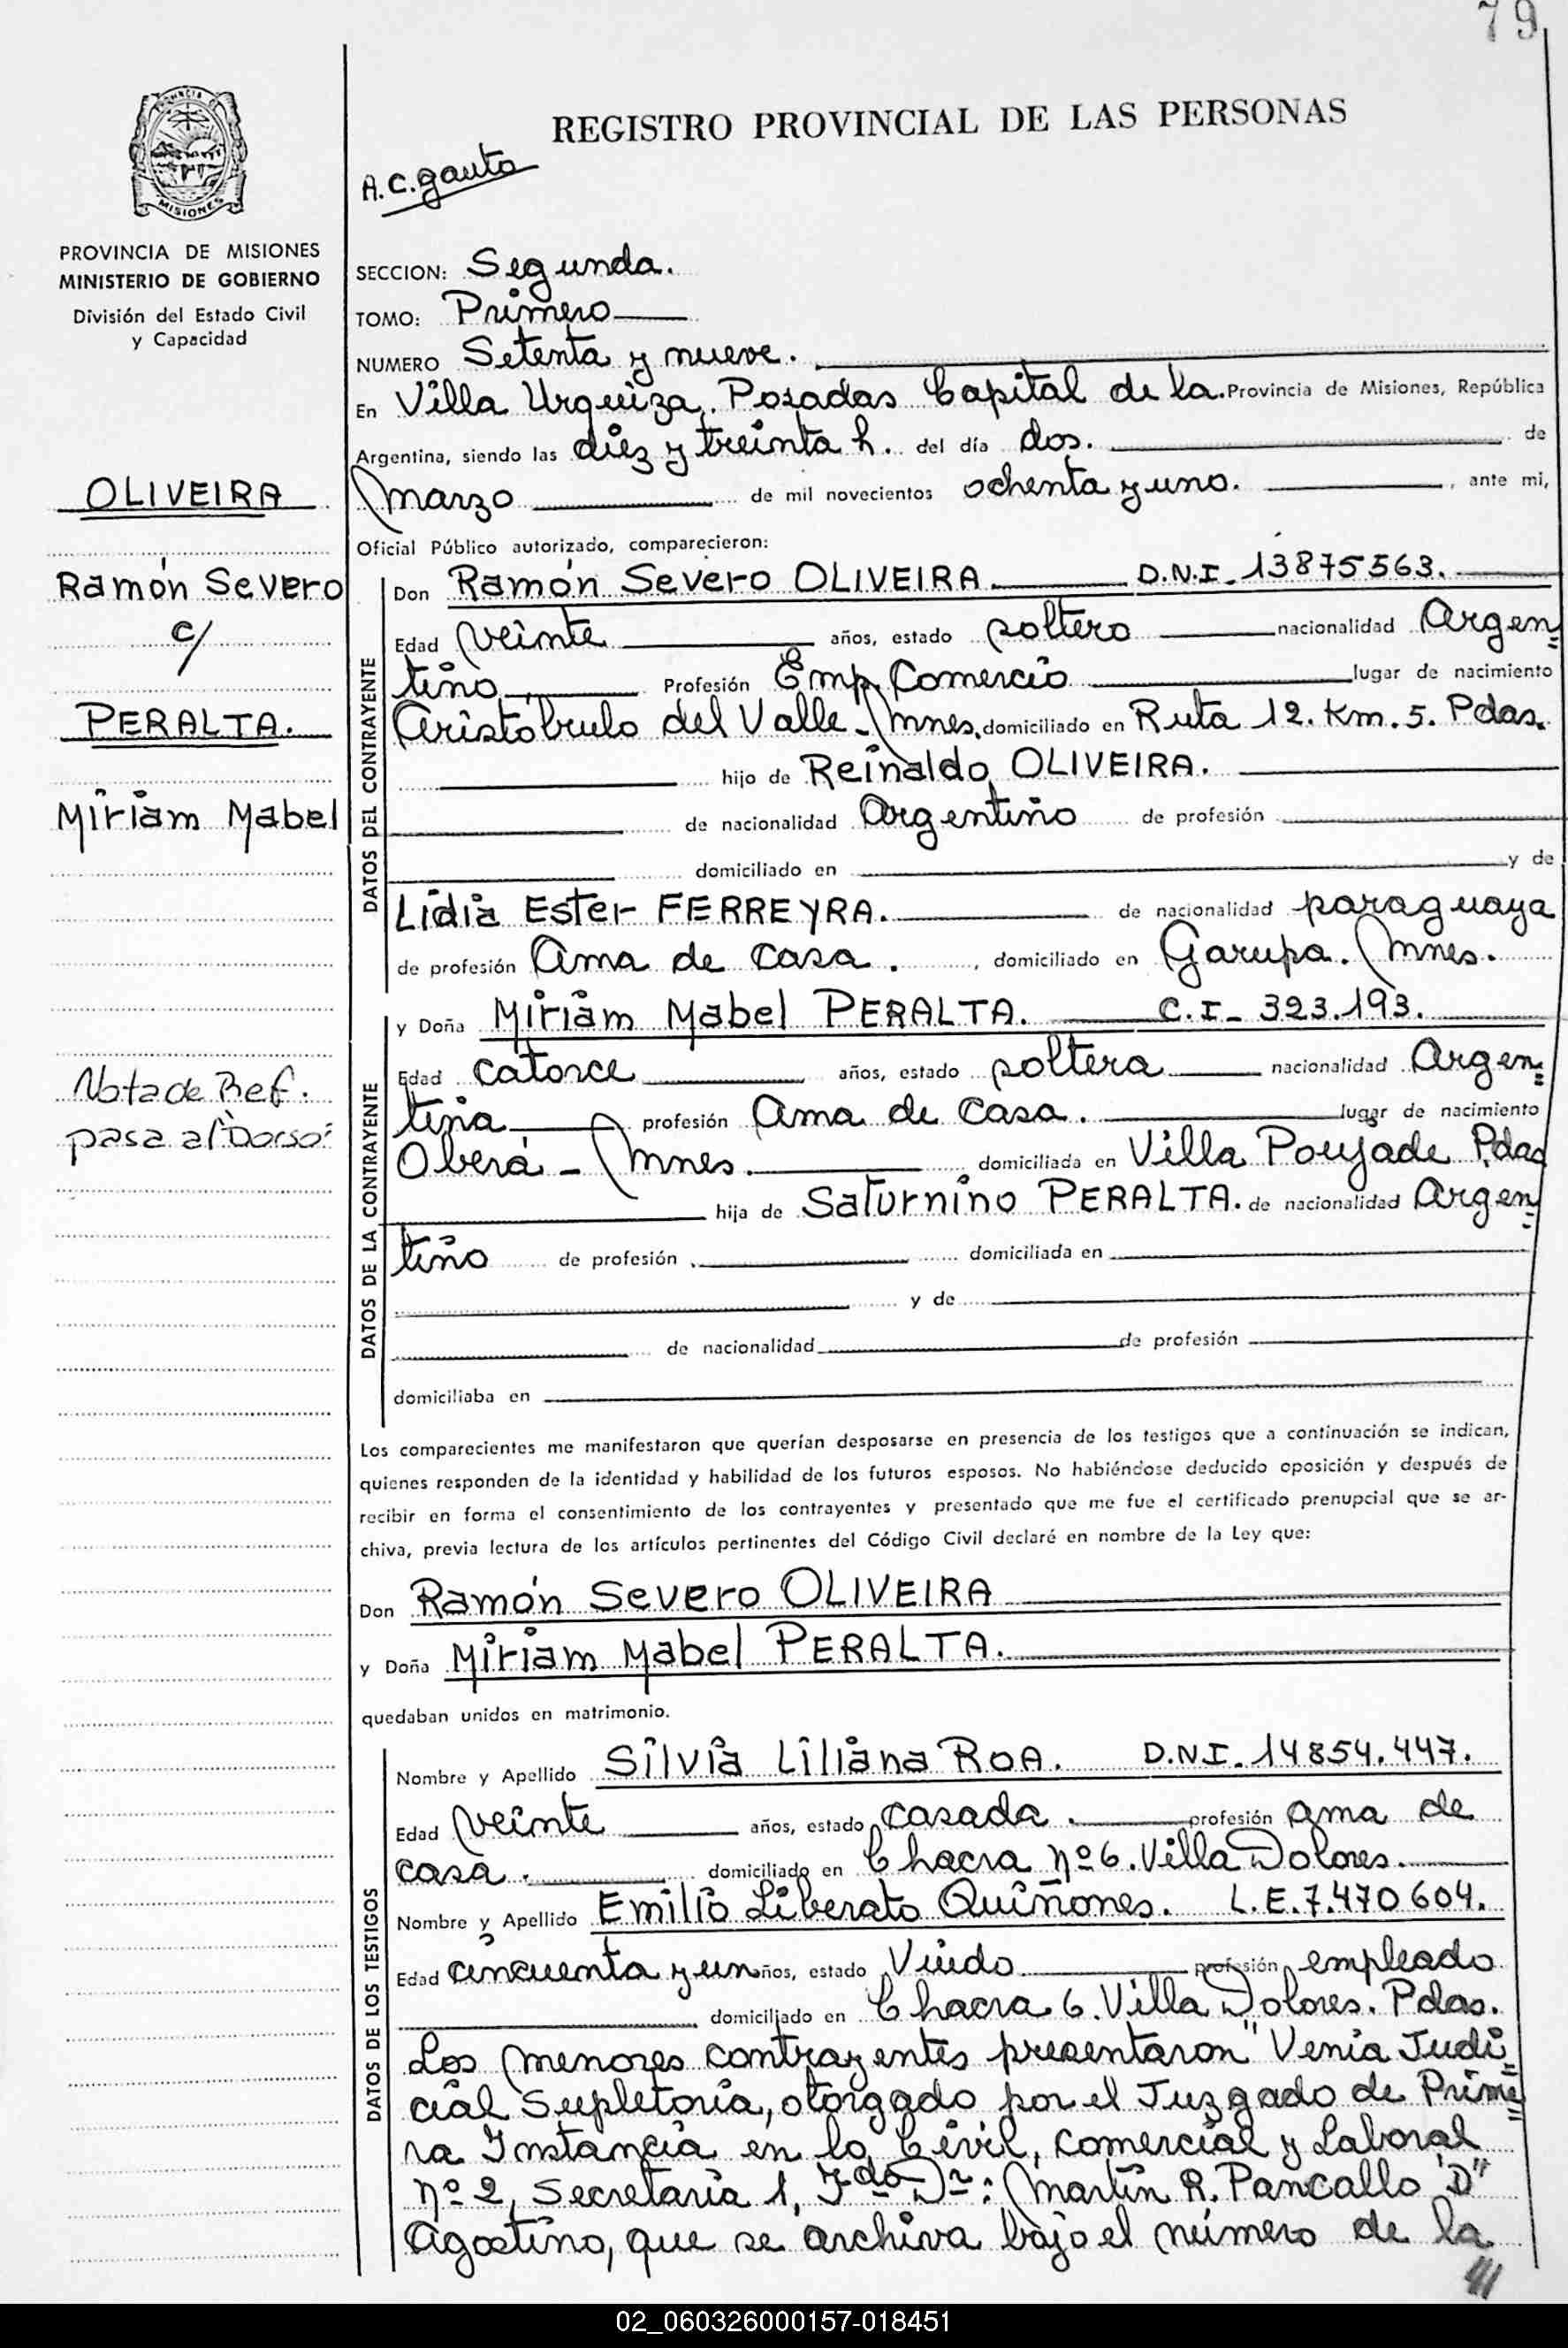 79
REGISTRO PROVINCIAL DE LAS PERSONAS
A.C. gauto
PROVINCIA DE MISIONES
MINISTERIO DE GOBIERNO
División del Estado Civil
y Capacidad
OLIVEIRA
Ramón Severo
c/
PERALTA.
Miriam Mabel
Nota de Ref.
pasa al "Dorso"
SECCION: Segunda.
TOMO: Primero
NUMERO Setenta y nueve.
En Villa Urquiza, Posadas Capital de la Provincia de Misiones, República
Argentina, siendo las diez y treinta h. del día dos. de
marzo de mil novecientos ochenta y uno. , ante mi,
Oficial Público autorizado, comparecieron:
DATOS DEL CONTRAYENTE
Don Ramón Severo OLIVEIRA D.N.I. 13875563.
Edad veinte años, estado soltero nacionalidad Argen=
tino Profesión Emp. Comercio lugar de nacimiento
Aristóbulo del Valle - Mnes. domiciliado en Ruta 12. Km. 5. Pdas.
hijo de Reinaldo OLIVEIRA.
de nacionalidad Argentino de profesión
domiciliado en y de
Lidia Ester FERREYRA. de nacionalidad paraguaya
de profesión Ama de casa. , domiciliado en Garupa. Mnes.
DATOS DE LA CONTRAYENTE
y Doña Miriam Mabel PERALTA. C.I- 323.193.
Edad catorce años, estado soltera nacionalidad Argen=
tina profesión Ama de casa. lugar de nacimiento
Oberá - Mnes. domiciliada en Villa Poujade Pdas
hija de Saturnino PERALTA. de nacionalidad Argen=
tino de profesión domiciliada en
y de
de nacionalidad de profesión
domiciliaba en
Los comparecientes me manifestaron que querían desposarse en presencia de los testigos que a continuación se indican,
quienes responden de la identidad y habilidad de los futuros esposos. No habiéndose deducido oposición y después de
recibir en forma el consentimiento de los contrayentes y presentado que me fue el certificado prenupcial que se ar-
chiva, previa lectura de los artículos pertinentes del Código Civil declaré en nombre de la Ley que:
Don Ramón Severo OLIVEIRA
y Doña Miriam Mabel PERALTA.
quedaban unidos en matrimonio.
DATOS DE LOS TESTIGOS
Nombre y Apellido Silvia Liliana ROA. D.N.I. 14854.447.
Edad veinte años, estado casada. profesión ama de
casa. domiciliado en Chacra nº 6. Villa Dolores.
Nombre y Apellido Emilio Liberato Quiñones. L.E. 7.470604.
Edad cincuenta y un años, estado Viudo profesión empleado
domiciliado en Chacra 6. Villa Dolores. Pdas.
Los menores contrayentes presentaron "Venia Judi=
cial Supletoria, otorgado por el Juzgado de Prime=
ra Instancia en lo Civil, Comercial y Laboral
nº 2, Secretaria 1, Fdo Dr: Martin R. Pancallo "D"
Agostino, que se archiva bajo el número de la
02_060326000157-018451